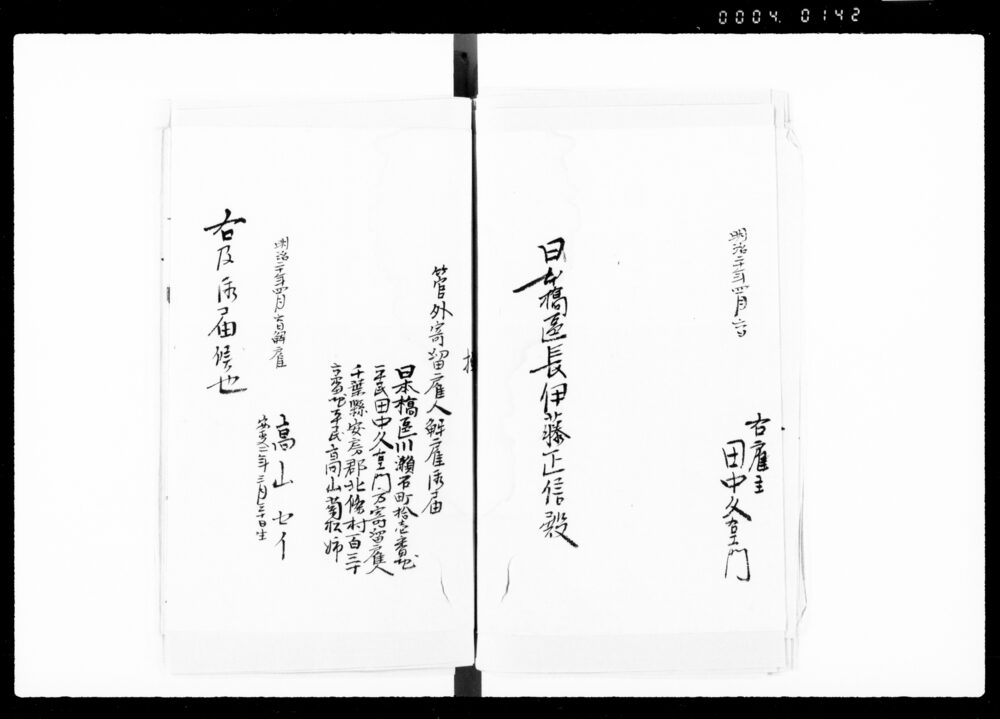 0004 0142
明治二十年四月六日
右雇主
田中久右エ門
日本橋區長伊藤正信殿
管外寄留雇人解雇御届
日本橋區川瀬石町拾壱番地
平民田中久右エ門方寄留雇人
千葉縣安房郡北條村百三十
六番地平民高山菊松姉
高山セイ
安政二年三月三十日生
明治二十年四月 日解雇
右及御届候也